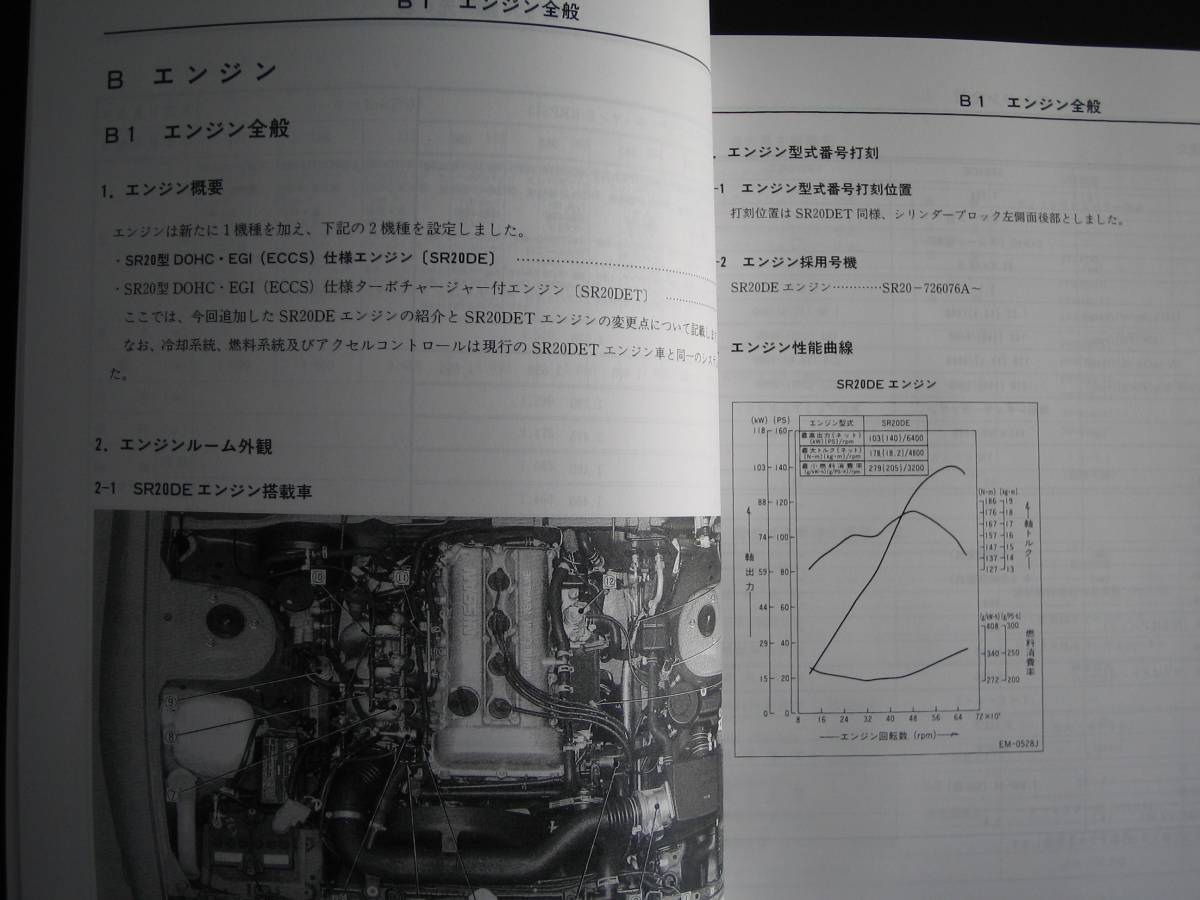 B1 エンジン全般
B エンジン
B1 エンジン全般
1. エンジン概要
エンジンは新たに1機種を加え、下記の2機種を設定しました。
・SR20型DOHC・EGI（ECCS）仕様エンジン〔SR20DE〕
・SR20型DOHC・EGI（ECCS）仕様ターボチャージャー付エンジン〔SR20DET〕
ここでは、今回追加したSR20DEエンジンの紹介とSR20DETエンジンの変更点について記載しま
なお、冷却系統、燃料系統及びアクセルコントロールは現行のSR20DETエンジン車と同一のシステ
た。
2. エンジンルーム外観
2-1 SR20DEエンジン搭載車
⑩ ⑪ ⑫
⑨
⑧
⑦
B1 エンジン全般
エンジン型式番号打刻
-1 エンジン型式番号打刻位置
打刻位置はSR20DET同様、シリンダーブロック左側面後部としました。
-2 エンジン採用号機
SR20DEエンジン…………SR20-726076A～
エンジン性能曲線
SR20DEエンジン
(kW) (PS)
エンジン型式 SR20DE
最高出力（ネット） (kW){PS}/rpm 103{140}/6400
最大トルク（ネット） (N-m){kg-m}/rpm 178{18.2}/4800
最小燃料消費率 (g/kW-h){g/PS-h}/rpm 279{205}/3200
118 160
103 140
88 120
74 100
59 80
44 60
29 40
15 20
0 0
軸出力
(N-m) (kg-m)
186 19
176 18
167 17
157 16
147 15
137 14
127 13
軸トルク
(g/kW-h) (g/PS-h)
408 300
340 250
272 200
燃料消費率
8 16 24 32 40 48 56 64 72×10²
エンジン回転数（rpm）
EM-0528J